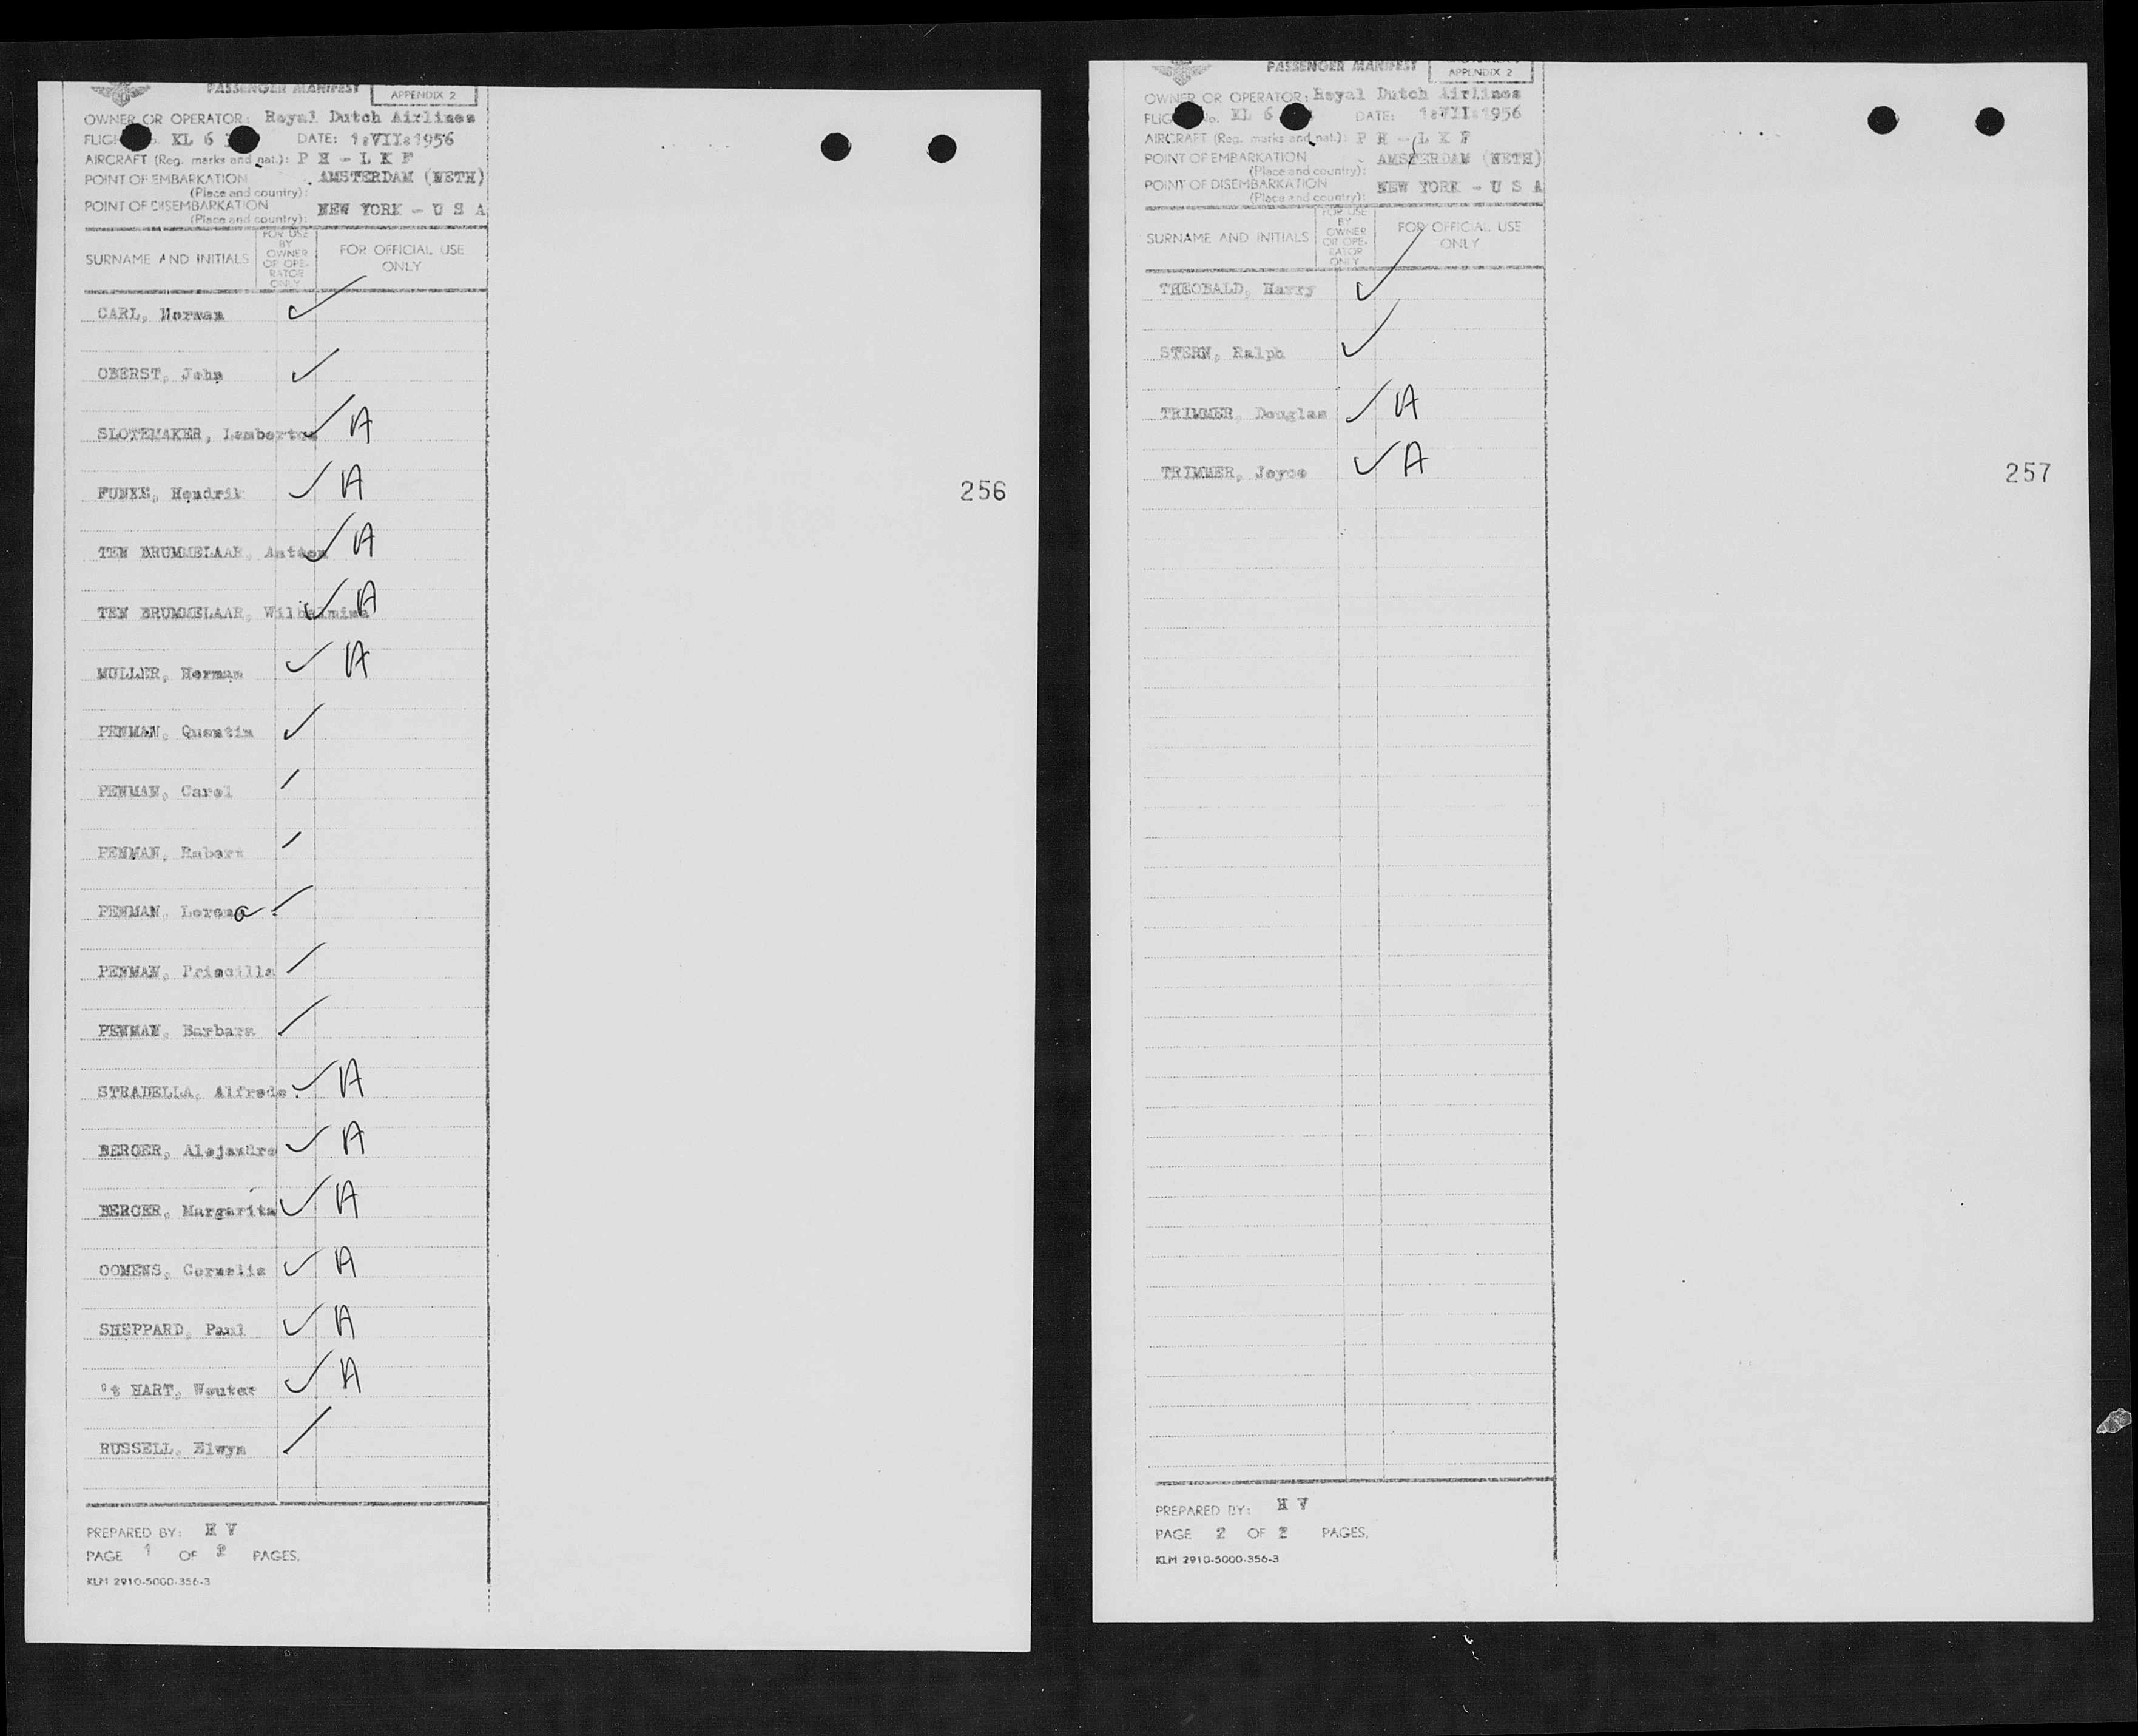 PASSENGER MANIFEST
APPENDIX 2
OWNER OR OPERATOR: Royal Dutch Airlines
KL 6 DATE: 1:VII:1956
AIRCRAFT (Reg. marks and nat.): P H - L K F
POINT OF EMBARKATION AMSTERDAM (NETH)
(Place and country):
POINT OF DISEMBARKATION NEW YORK - U S A
(Place and country):
SURNAME AND INITIALS
FOR USE
BY
OWNER
OR OPE-
RATOR
ONLY
FOR OFFICIAL USE
ONLY
CARL, Norman ✓
OBERST, John ✓
SLOTEMAKER, Lambertus ✓ A
FUNKE, Hendrik ✓ A
TEN BRUMMELAAR, Anton ✓ A
TEN BRUMMELAAR, Wilhelmina ✓ A
MULLER, Herman ✓ A
PENMAN, Quentin ✓
PENMAN, Carol /
PENMAN, Robert /
PENMAN, Lorena /
PENMAN, Priscilla /
PENMAN, Barbara /
STRADELLA, Alfredo ✓ A
BERGER, Alejandro ✓ A
BERGER, Margarita ✓ A
OOMENS, Cornelis ✓ A
SHEPPARD, Paul ✓ A
't HART, Wouter ✓ A
RUSSELL, Elwyn /
PREPARED BY: H V
PAGE 1 OF 2 PAGES.
KLM 2910-5000-356-3
256
PASSENGER MANIFEST
APPENDIX 2
OWNER OR OPERATOR: Royal Dutch Airlines
No. KL 6 DATE: 1:VII:1956
AIRCRAFT (Reg. marks and nat.): P H - L K F
POINT OF EMBARKATION AMSTERDAM (NETH)
(Place and country):
POINT OF DISEMBARKATION NEW YORK - U S A
(Place and country):
SURNAME AND INITIALS
FOR USE
BY
OWNER
OR OPE-
RATOR
ONLY
FOR OFFICIAL USE
ONLY
THEOBALD, Harry ✓
STERN, Ralph ✓
TRIMMER, Douglas ✓ A
TRIMMER, Joyce ✓ A
PREPARED BY: H V
PAGE 2 OF 2 PAGES.
KLM 2910-5000-356-3
257